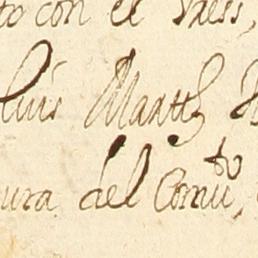 to con el
Luis Martz
ura del Comu,